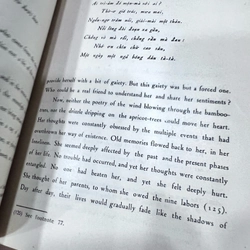 Thờ-ơ gió trúc, mưa mai,
Ngẩn-ngơ trăm nỗi, giùi-mài một thân.
Nỗi lòng đòi đoạn xa gần,
Chẳng vò mà rối, chẳng dần mà đau :
Nhớ ơn chín chữ cao sâu,
Một ngày một ngả bóng dâu tà-tà.
herself with a bit of gaiety. But this gaiety was but a forced one.
Who could be a real friend to understand her and share her sentiments ?
Now, neither the poetry of the wind blowing through the bamboo-
nor the drizzle dripping on the apricot-trees could move her heart.
Her thoughts were constantly obsessed by the multiple events that had
her way of existence. Old memories flowed back to her, in her
loneliness. She seemed deeply affected by the past and the present phases
of her life. No trouble had occurred, and yet her thoughts were constantly
No one had beaten her, and yet she felt deeply hurt.
She thought of her parents, to whom she owed the nine labors (125).
Day after day, their lives would gradually fade like the shadows of
77.